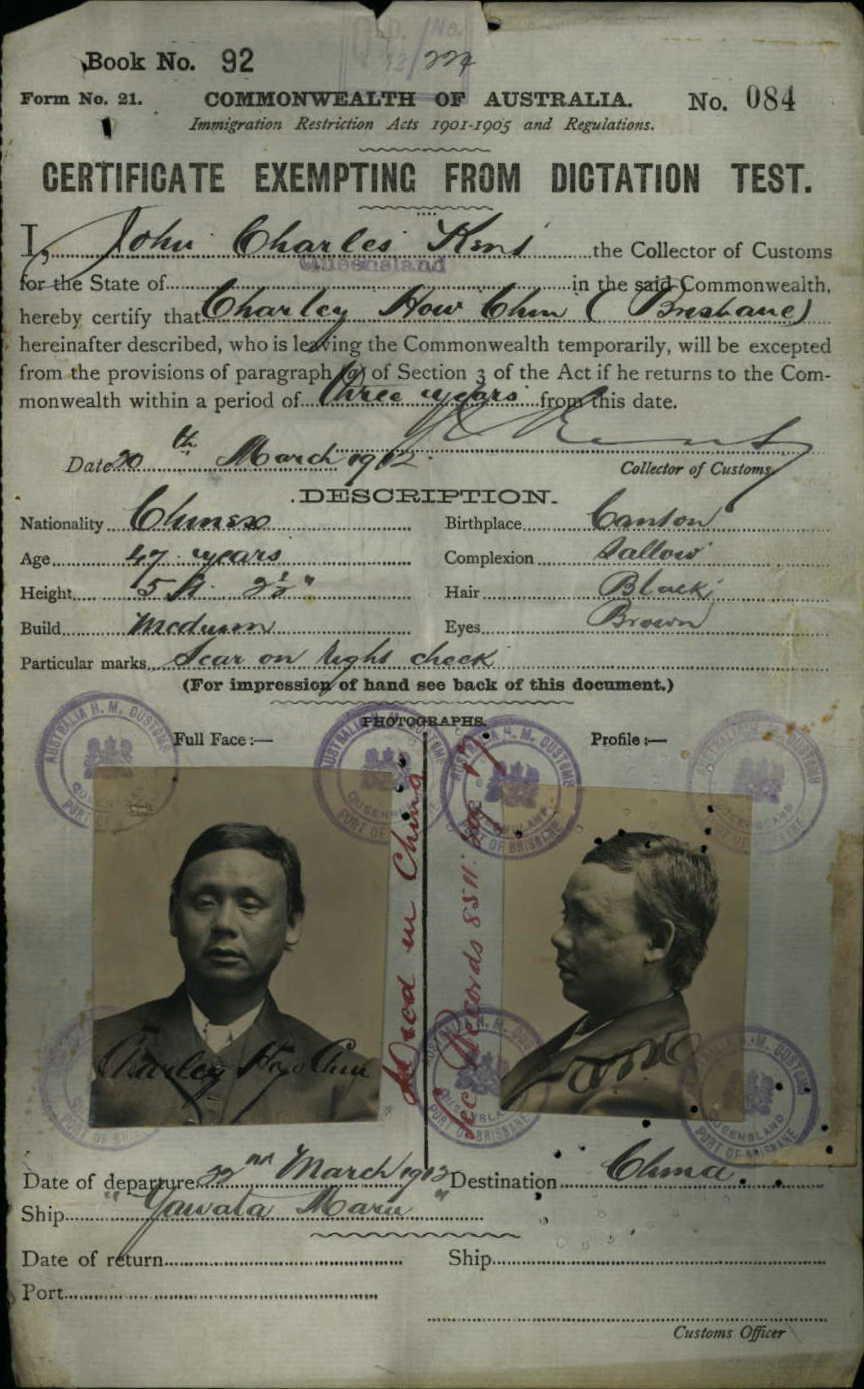 Book No. 92
224
Form No. 21. COMMONWEALTH OF AUSTRALIA. No. 084
Immigration Restriction Acts 1901-1905 and Regulations.
CERTIFICATE EXEMPTING FROM DICTATION TEST.
I, John Charles Kent the Collector of Customs
Queensland
for the State of in the said Commonwealth,
hereby certify that Charley How Chin (Brisbane)
hereinafter described, who is leaving the Commonwealth temporarily, will be excepted
from the provisions of paragraph (a) of Section 3 of the Act if he returns to the Com-
monwealth within a period of three years from this date.
Date 20th March 1912.
Collector of Customs
DESCRIPTION.
Nationality Chinese Birthplace Canton
Age 47 years Complexion Sallow
Height 5 ft 2½" Hair Black
Build Medium Eyes Brown
Particular marks Scar on right cheek
(For impression of hand see back of this document.)
PHOTOGRAPHS.
Full Face :— Profile :—
AUSTRALIA H. M. CUSTOMS
QUEENSLAND
PORT OF BRISBANE
Died in China
See Records 8511
Charley How Chin
Date of departure 22nd March 1912 Destination China.
Ship "Yawata Maru"
Date of return Ship
Port
Customs Officer